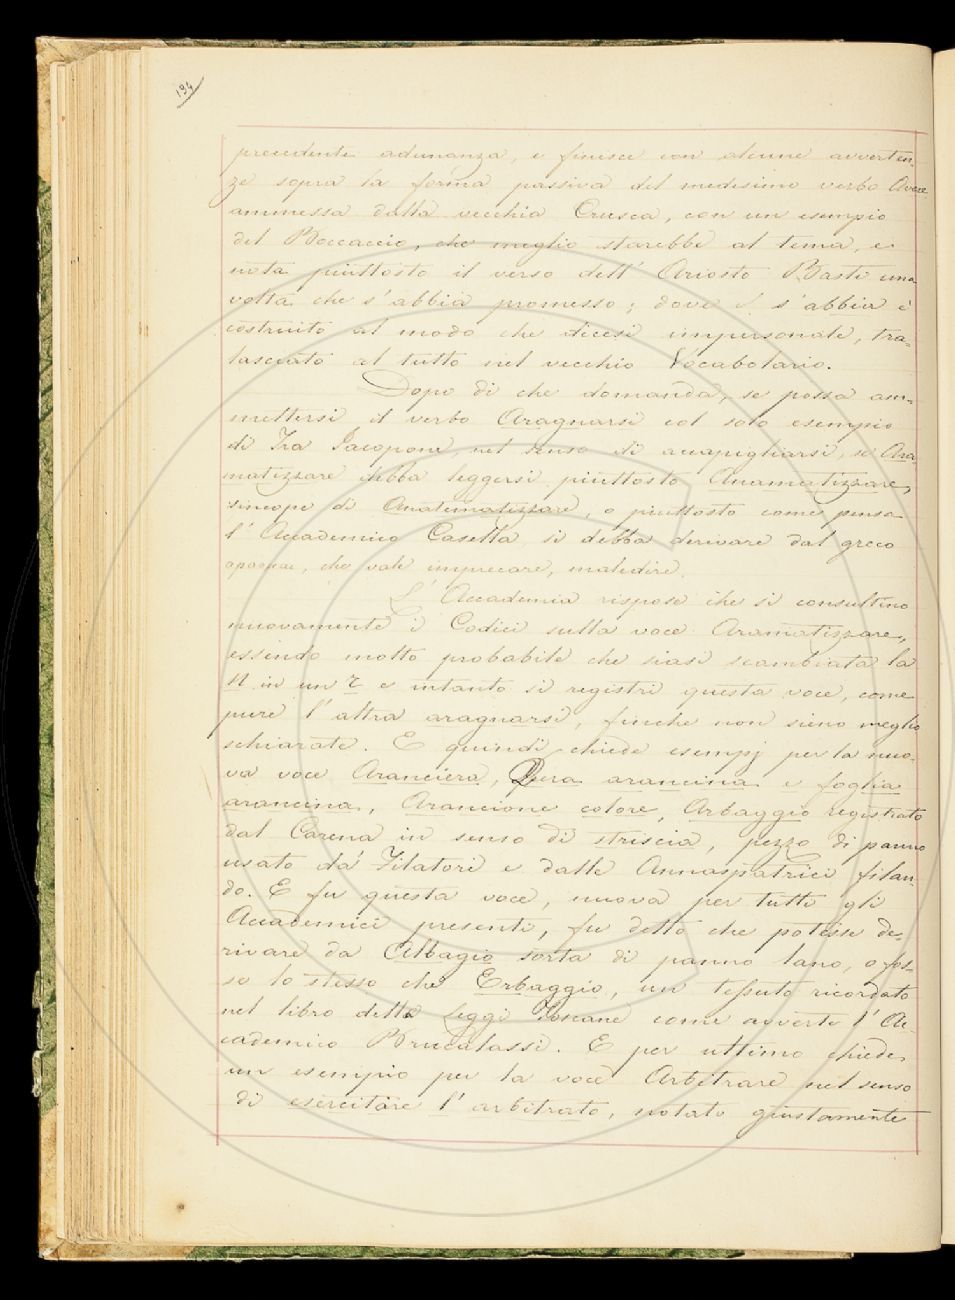 194
precedente adunanza, e finisce con alcune avverten-
ze sopra la forma passiva del medesimo verbo Avere
ammessa dalla vecchia Crusca, con un esempio
del Boccaccio, che meglio starebbe al tema, e
nota piùttosto il verso dell' Ariosto Basti una
volta che s'abbia promesso; dove s'abbia è
costruito al modo che dicesi impersonale, tra-
lasciato al tutto nel vecchio Vocabolario.
Dopo di che domanda, se possa am-
mettersi il verbo Aragnarsi col solo esempio
di Fra Jacopone nel senso di accapigliarsi, se Ara-
matizzare debba leggersi piùttosto Anamatizzare,
sincope di Anatematizzare, o piuttosto come pensa
l'Accademico Casella, si debba derivare dal greco
, che vale imprecare, maledire.
L'Accademia rispose che si consultino
nuovamente i Codici sulla voce Aramatizzare,
essendo molto probabile che siasi scambiata la
n in un r e intanto si registri questa voce, come
pure l'altra aragnarsi, finchè non sieno meglio
schiarate. E quindi chiede esempj per la nuo-
va voce Aranciera, Pera arancina e foglia
arancina, Arancione colore, Arbaggio registrato
dal Carena in senso di striscia, pezzo di panno
usato da' Filatori e dalle Annaspatrici filan-
do. E fu questa voce, nuova per tutti gli
Accademici presenti, fu detto che potesse de-
rivare da Albagio sorta di panno lano, o fos-
se lo stesso che Erbaggio, un tessuto ricordato
nel libro delle Leggi Toscane come avverte l'Ac-
cademico Brucalassi. E per ultimo chiede
un esempio per la voce Arbitrare nel senso
di esercitare l'arbitrato, notato giustamente